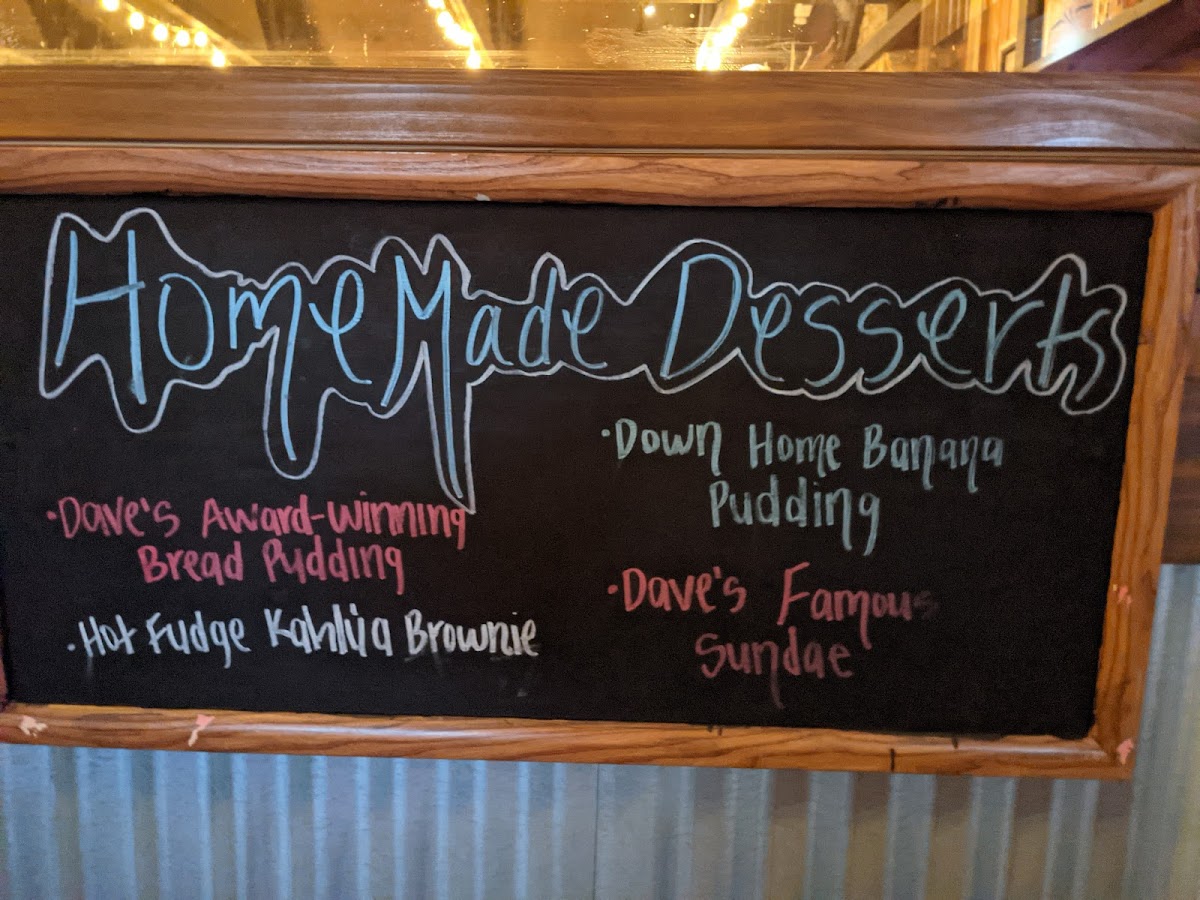 HomeMade Desserts
·Dave's Award-winning
Bread Pudding
·Hot Fudge Kahlúa Brownie
·Down Home Banana
Pudding
·Dave's Famous
Sundae